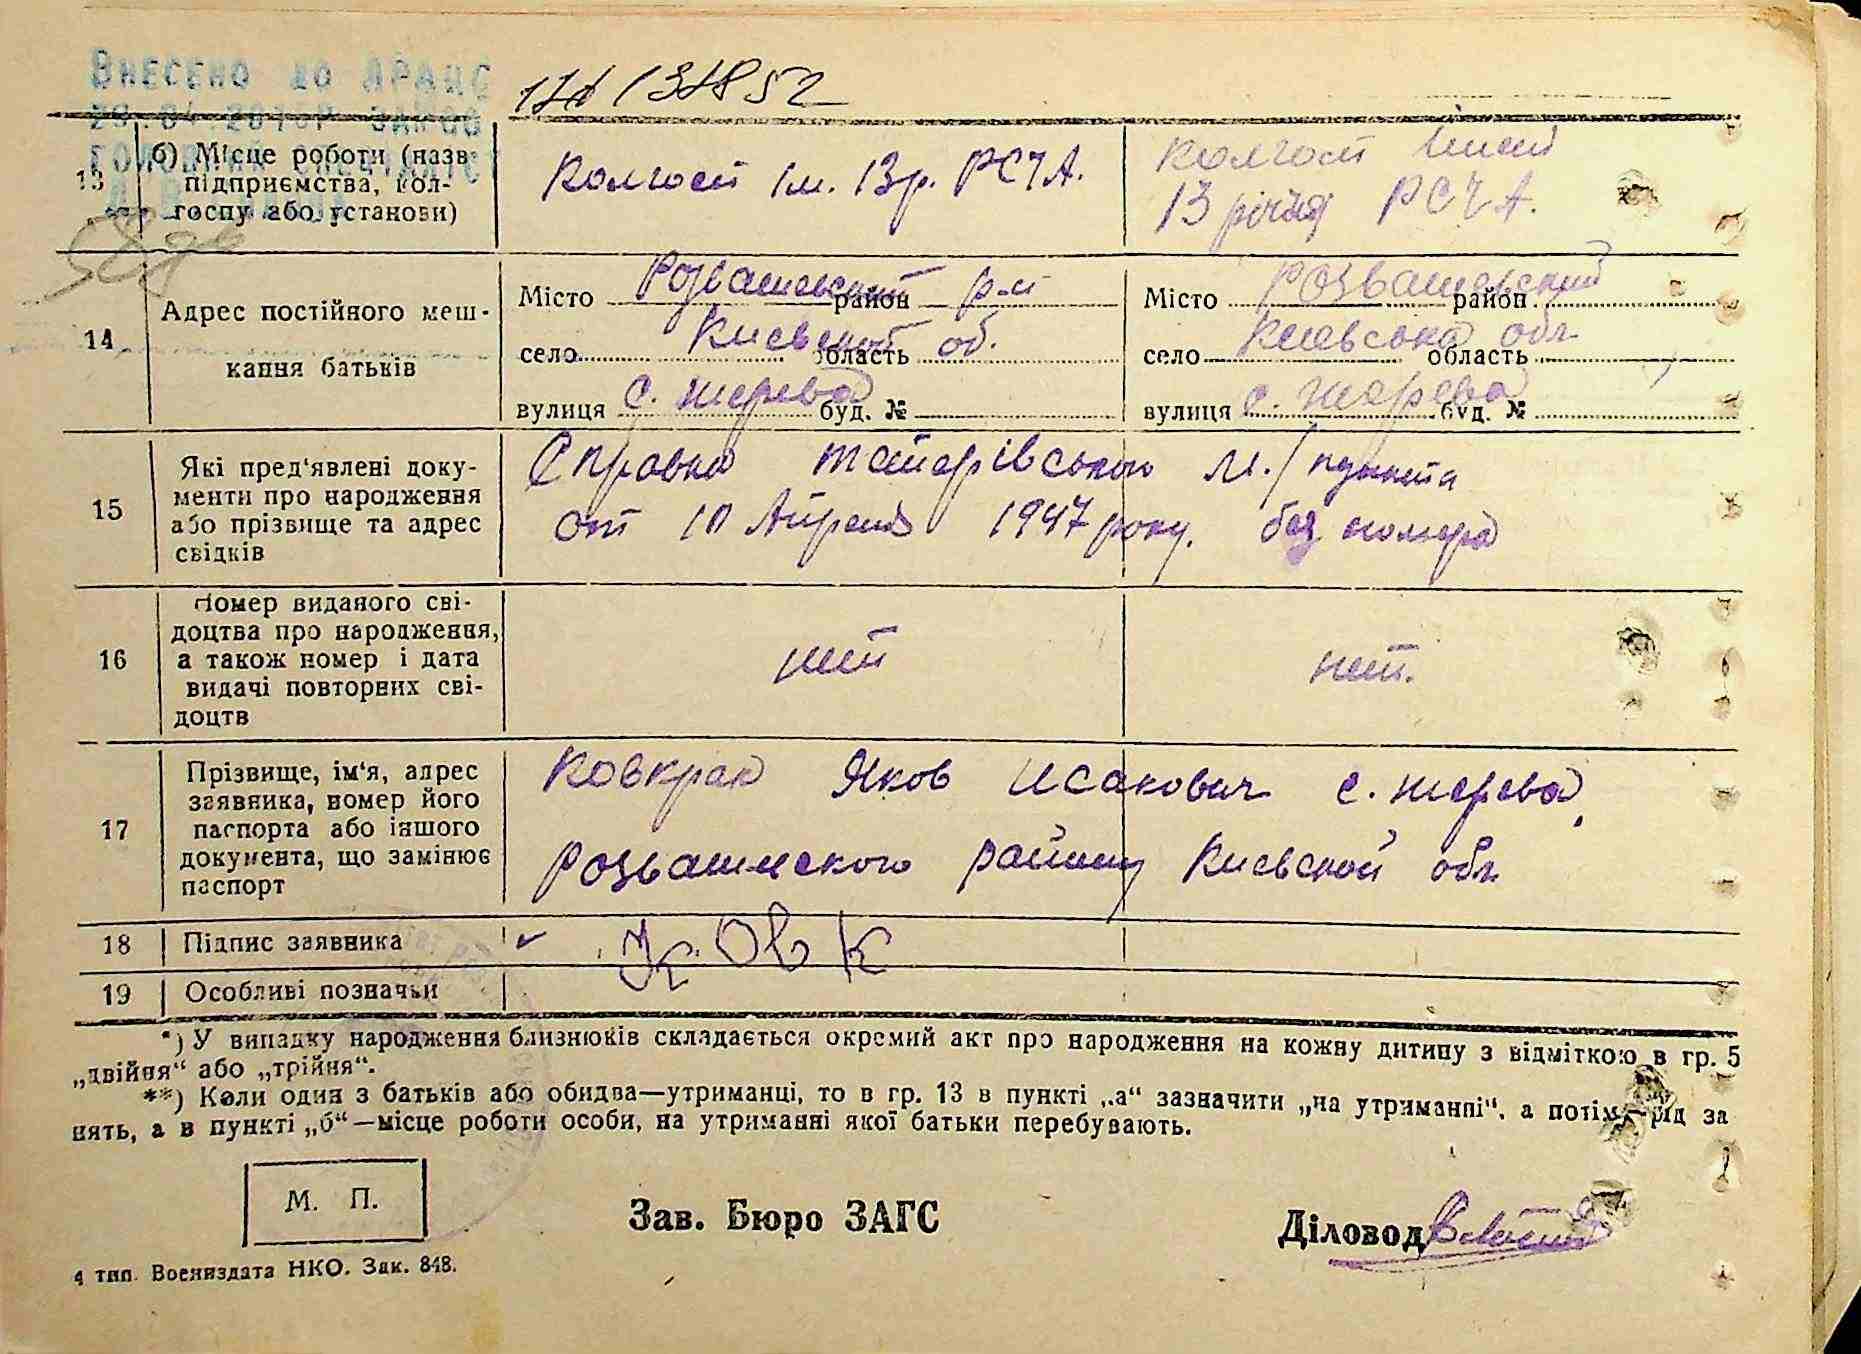 Внесено до ДРАЦС
13 б) Місце роботи (назва
підприємства, кол-
госпу або установи)
Колгосп ім. 13 р. РСЧА.
Колгосп імені
13 річчя РСЧА.
14 Адрес постійного меш-
кання батьків
Місто Розважевский район р-н
село Киевской область об.
вулиця с. Жерева буд. №
Місто Розважевский район
село Киевська область обл
вулиця с. Жерева буд. №
15 Які пред'явлені доку-
менти про народження
або прізвище та адрес
свідків
Справка м./пункта
от 10 Апреля 1947 року. без номера
16 Номер виданого сві-
доцтва про народження,
а також номер і дата
видачі повторних сві-
доцтв
нет
нет.
17 Прізвище, ім'я, адрес
заявника, номер його
паспорта або іншого
документа, що замінює
паспорт
Ковкрак Яков Исакович с. Жерева
Розважевского району Киевской обл
18 Підпис заявника
19 Особливі позначки
*) У випадку народження близнюків складається окремий акт про народження на кожну дитину з відміткою в гр. 5
„двійня“ або „трійня“.
**) Коли один з батьків або обидва—утриманці, то в гр. 13 в пункті „а“ зазначити „на утриманні“, а потім—рід за
нять, а в пункті „б“—місце роботи особи, на утриманні якої батьки перебувають.
М. П.
Зав. Бюро ЗАГС
Діловод
4 тип. Воениздата НКО. Зак. 848.